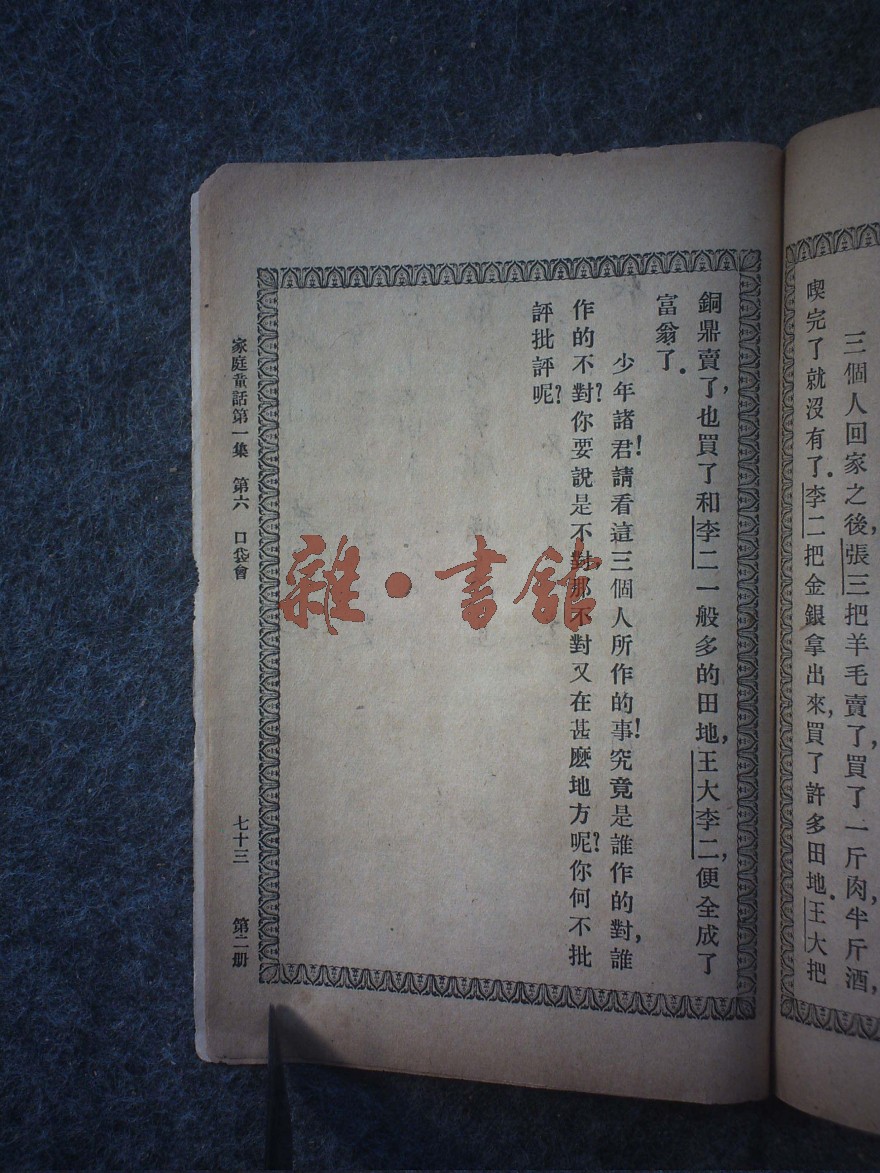 三個人回家之後,張三把羊毛賣了,買了一斤肉,半斤酒,
喫完了就沒有了.李二把金銀拿出來,買了許多田地.王大把
銅鼎賣了,也買了和李二一般多的田地,王大李二,便全成了
富翁了.
少年諸君!請看這三個人所作的事!究竟是誰作的對,誰
作的不對?你要說是不對那不對又在甚麼地方呢?你何不批
評批評呢?
家庭童話第一集 第六 口袋會 七十三 第二册
雜·書館